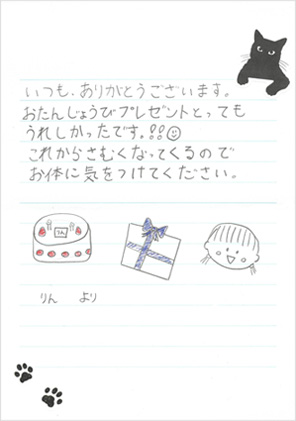 いつも、ありがとうございます。
おたんじょうびプレゼントとっても
うれしかったです。!!
これからさむくなってくるので
お体に気をつけてください。
りん
りん より